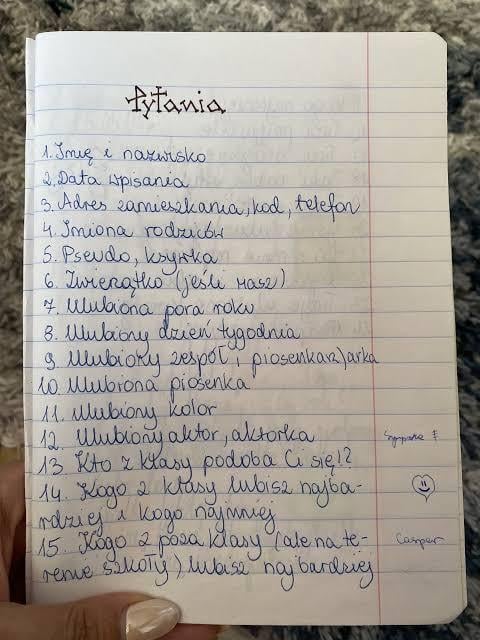 Pytania
1. Imię i nazwisko
2. Data wpisania
3. Adres zamieszkania, kod, telefon
4. Imiona rodziców
5. Pseudo, ksywka
6. Zwierzątko (jeśli masz)
7. Ulubiona pora roku
8. Ulubiony dzień tygodnia
9. Ulubiony zespół, piosenkarz)arka
10. Ulubiona piosenka
11. Ulubiony kolor
12. Ulubiony aktor, aktorka
13. Kto z klasy podoba Ci się!?
14. Kogo z klasy lubisz najba-
rdziej i kogo najmniej
15. Kogo z poza klasy (ale na te-
renie szkoły) lubisz najbardziej
Casper